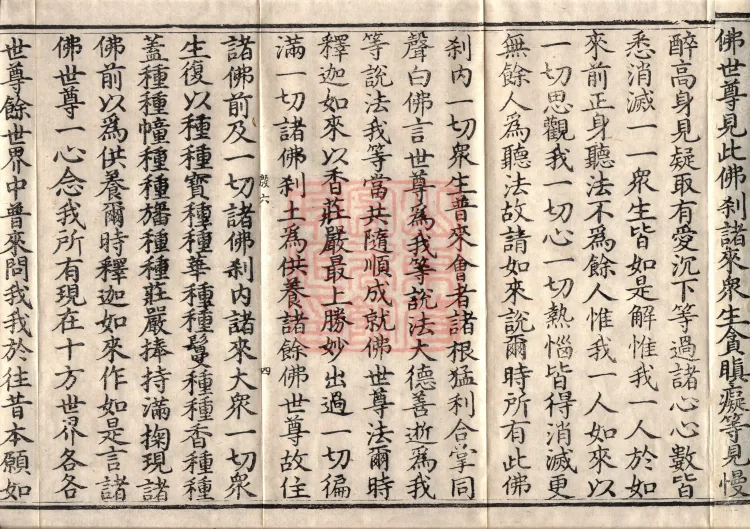 佛世尊見此佛刹諸來衆生貪瞋癡等見慢
醉高身見疑取有愛沉下等過諸心心數皆
悉消滅一一衆生皆如是解惟我一人於如
來前正身聽法不爲餘人惟我一人如來以
一切思觀我一切心一切熱惱皆得消滅更
無餘人爲聽法故請如來說爾時所有此佛
刹内一切衆生普來會者諸根猛利合掌同
聲白佛言世尊爲我等說法大德善逝爲我
等說法我等當共隨順成就佛世尊法爾時
釋迦如來以香莊嚴最上勝妙出過一切徧
滿一切諸佛刹土爲供養諸餘佛世尊故住
六
四
諸佛前及一切諸佛刹内諸來大衆一切衆
生復以種種寶種種華種種鬘種種香種種
蓋種種幢種種旛種種莊嚴捧持滿掬現諸
佛前以爲供養爾時釋迦如來作如是言諸
佛世尊一心念我所有現在十方世界各各
世尊餘世界中普來問我我於往昔本願如